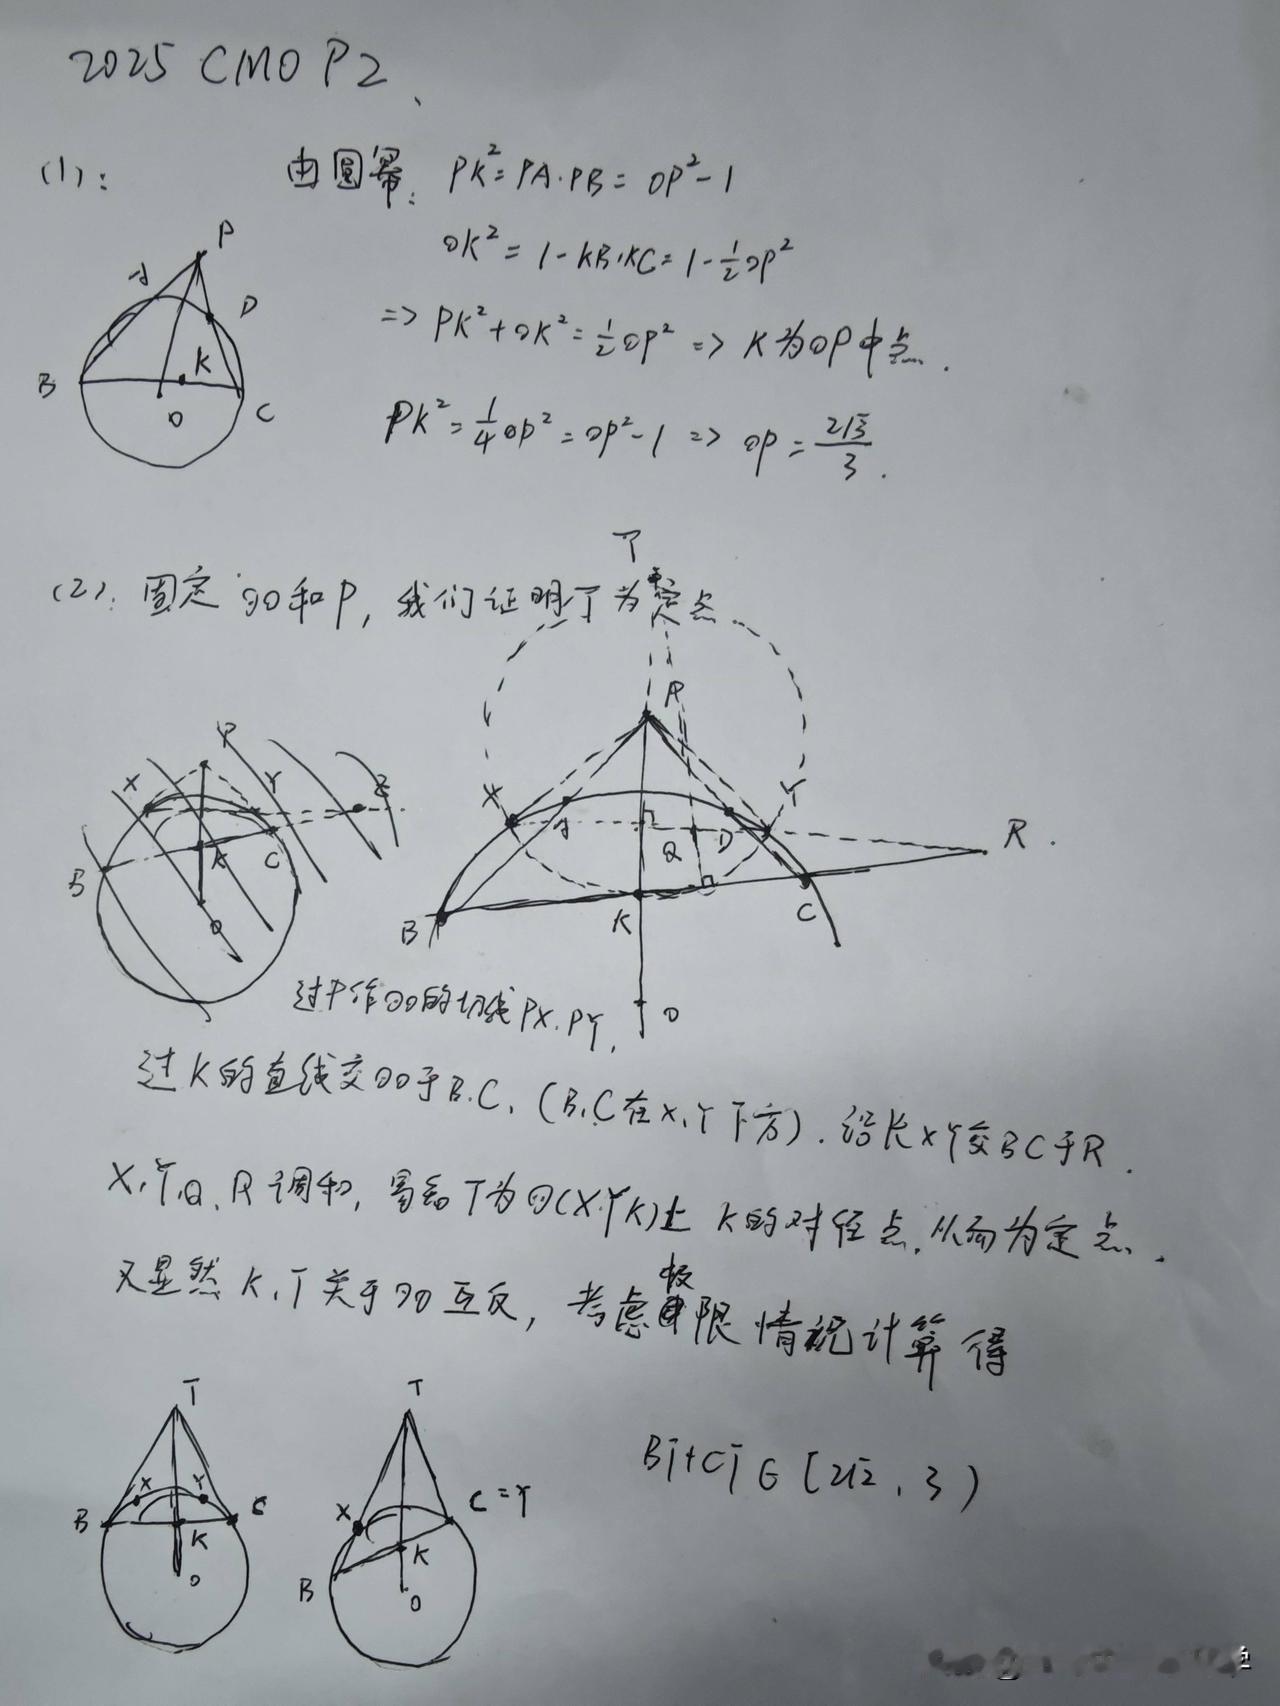 2025 CMO P2、
(1): 由圆幂: PK²=PA·PB=OP²-1
OK²=1-KB·KC=1-½OP²
=> PK²+OK²=½OP² => K为OP中点.
PK²=¼OP²=OP²-1 => OP=2√3/3.
P
A
D
B
K
O
C
T
(2): 固定⊙O和P, 我们证明T为定点.
P
X
Y
B
A
C
O
P
X
A
Q
D
Y
R.
B
K
C
O
过P作⊙O的切线PX.PY,
过K的直线交⊙O于B.C, (B,C在X,Y下方). 延长XY交BC于R.
X,Y,Q,R调和, 易知T为⊙(XYK)上K的对径点, 从而为定点.
又显然K,T关于⊙O互反, 考虑极限情况计算得
T
X
Y
B
K
C
O
T
X
C=Y
K
B
O
BT+CT∈[2√2, 3)